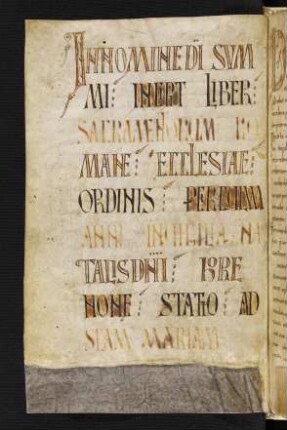 IN NOMINE DÎ SUM
MI: INCIPT LIBER:
SACRAMENTORUM RO
MANE: ECCLESIAE:
ORDINIS: PER CIRCULUM
ANNI IN UIGILIA NA
TALIS DÑI: HORE
NONE: STATIO AD
SCAM MARIAM